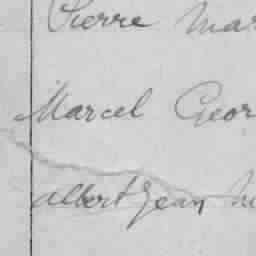 Pierre Mar
Marcel Geor
Albert Jean M